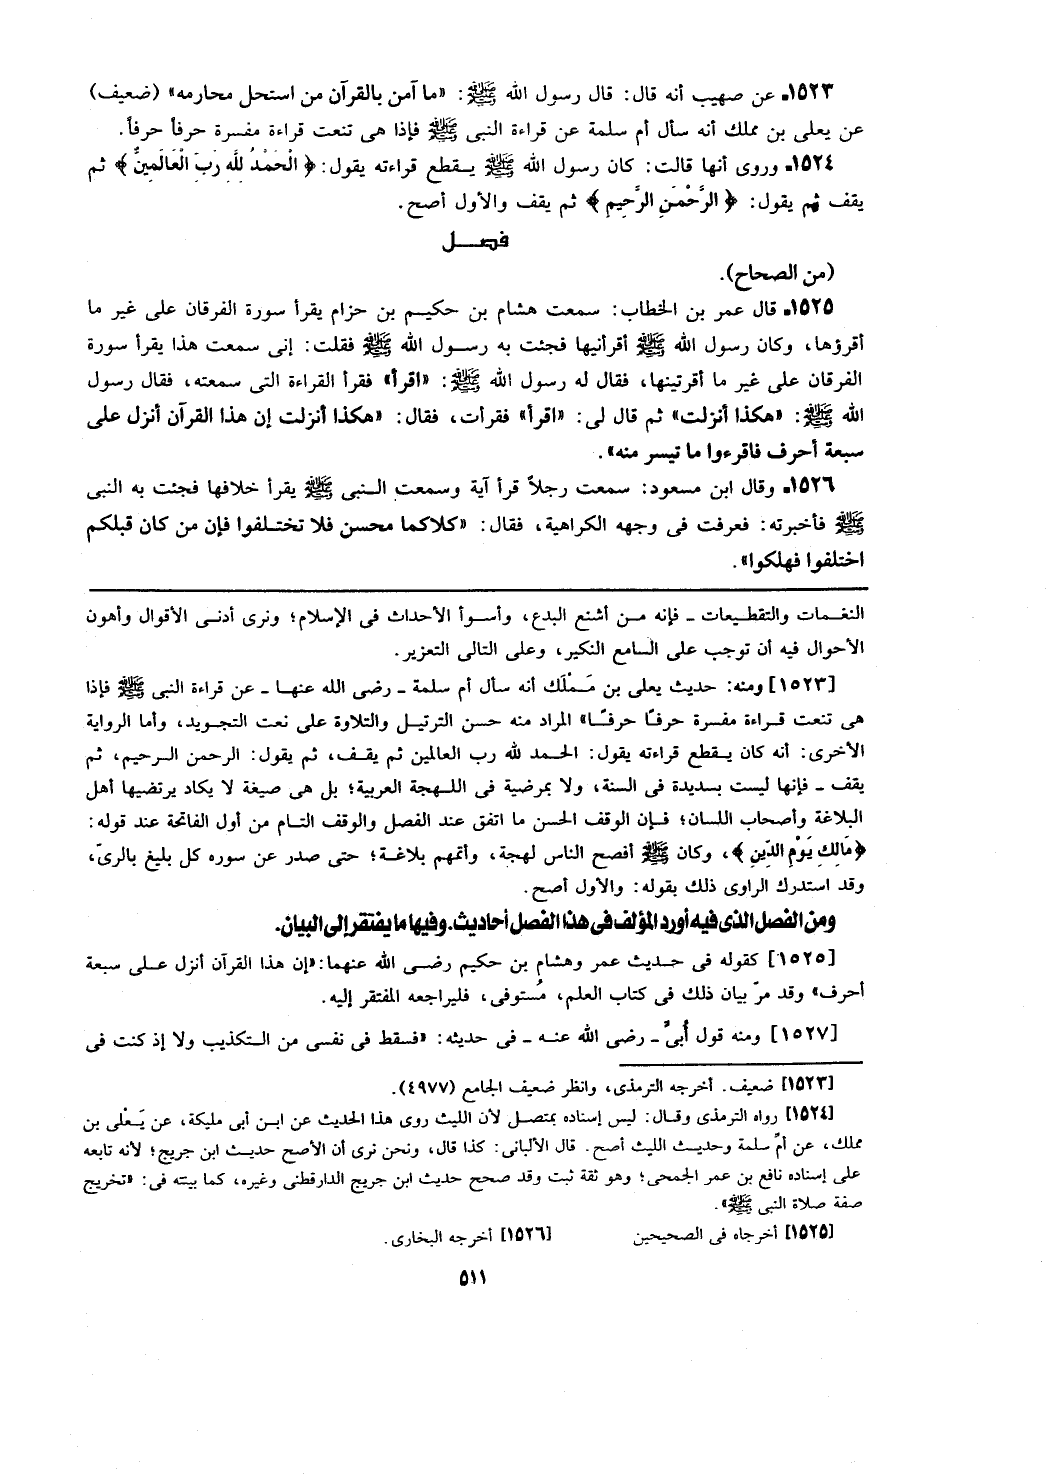 ١٥٢٣ـ عن صهيب أنه قال: قال رسول الله ﷺ: «ما آمن بالقرآن من استحل محارمه» (ضعيف)
عن يعلى بن مملك أنه سأل أم سلمة عن قراءة النبى ﷺ فإذا هى تنعت قراءة مفسرة حرفاً حرفاً.
١٥٢٤ـ وروى أنها قالت: كان رسول الله ﷺ يـقطع قراءته يقول: ﴿ الْحَمْدُ للَّهِ رَبِّ الْعَالَمِينَ ﴾ ثم
يقف ثم يقول: ﴿ الرَّحْمَنِ الرَّحِيمِ ﴾ ثم يقف والأول أصح.
فصـــل
(من الصحاح).
١٥٢٥ـ قال عمر بن الخطاب: سمعت هشام بن حكيـم بن حزام يقرأ سورة الفرقان على غير ما
أقرؤها، وكان رسول الله ﷺ أقرأنيها فجئت به رسـول الله ﷺ فقلت: إنى سمعت هذا يقرأ سورة
الفرقان على غير ما أقرتينها، فقال له رسول الله ﷺ: «اقرأ» فقرأ القراءة التى سمعته، فقال رسول
الله ﷺ: «هكذا أنزلت» ثم قال لى: «اقرأ» فقرأت، فقال: «هكذا أنزلت إن هذا القرآن أنزل على
سبعة أحرف فاقرءوا ما تيسر منه».
١٥٢٦ـ وقال ابن مسعود: سمعت رجلاً قرأ آية وسمعت الـنبى ﷺ يقرأ خلافها فجئت به النبى
ﷺ فأخبرته: فعرفت فى وجهه الكراهية، فقال: «كلاكما محسن فلا تختـلفوا فإن من كان قبلكم
اختلفوا فهلكوا».
النغـمات والتقطـيعات ـ فإنه مـن أشنع البدع، وأسـوأ الأحداث فى الإسلام؛ ونرى أدنـى الأقوال وأهون
الأحوال فيه أن توجب على السامع النكير، وعلى التالى التعزير.
[١٥٢٣] ومنه: حديث يعلى بن مَـمْلَك أنه سأل أم سلمة ـ رضى الله عنهـا ـ عن قراءة النبى ﷺ فإذا
هى تنعت قـراءة مفسرة حرفًا حرفًـا» المراد منه حسن الترتيـل والتلاوة على نعت التجويـد، وأما الرواية
الأخرى: أنه كان يـقطع قراءته يقول: الحـمد لله رب العالمين ثم يقـف، ثم يقول: الرحمن الـرحيم، ثم
يقف ـ فإنها ليست بسديدة فى السنة، ولا بمرضية فى اللـهجة العربية؛ بل هى صيغة لا يكاد يرتضيها أهل
البلاغة وأصحاب اللسان؛ فـإن الوقف الحسن ما اتفق عند الفصل والوقف التـام من أول الفاتحة عند قوله:
﴿مَالِكِ يَوْمِ الدِّينِ﴾، وكان ﷺ أفصح الناس لهجة، وأتمهم بلاغـة؛ حتى صدر عن سوره كل بليغ بالرىّ،
وقد استدرك الراوى ذلك بقوله: والأول أصح.
ومن الفصل الذى فيه أورد المؤلف فى هذا الفصل أحاديث. وفيها ما يفتقر إلى البيان.
[١٥٢٥] كقوله فى حـديث عمر وهشام بن حكيم رضـى الله عنهما: «إن هذا القرآن أنزل عـلى سبعة
أحرف» وقد مرّ بيان ذلك فى كتاب العلم، مُستوفى، فليراجعه المفتقر إليه.
[١٥٢٧] ومنه قول أُبىٍّ ـ رضى الله عنـه ـ فى حديثه: «فسقط فى نفسى من الـتكذيب ولا إذ كنت فى
[١٥٢٣] ضعيف. أخرجه الترمذى، وانظر ضعيف الجامع (٤٩٧٧).
[١٥٢٤] رواه الترمذى وقـال: ليس إسناده بمتصـل لأن الليث روى هذا الحديث عن ابـن أبى مليكة، عن يَعْلى بن
مملك، عن أمّ سلمة وحديـث الليث أصح. قال الألبانى: كذا قال، ونحن نرى أن الأصح حديـث ابن جريج؛ لأنه تابعه
على إسناده نافع بن عمر الجمحى؛ وهو ثقة ثبت وقد صحح حديث ابن جريج الدارقطنى وغيره، كما بيته فى: «تخريج
صفة صلاة النبى ﷺ».
[١٥٢٥] أخرجاه فى الصحيحين [١٥٢٦] أخرجه البخارى.
٥١١